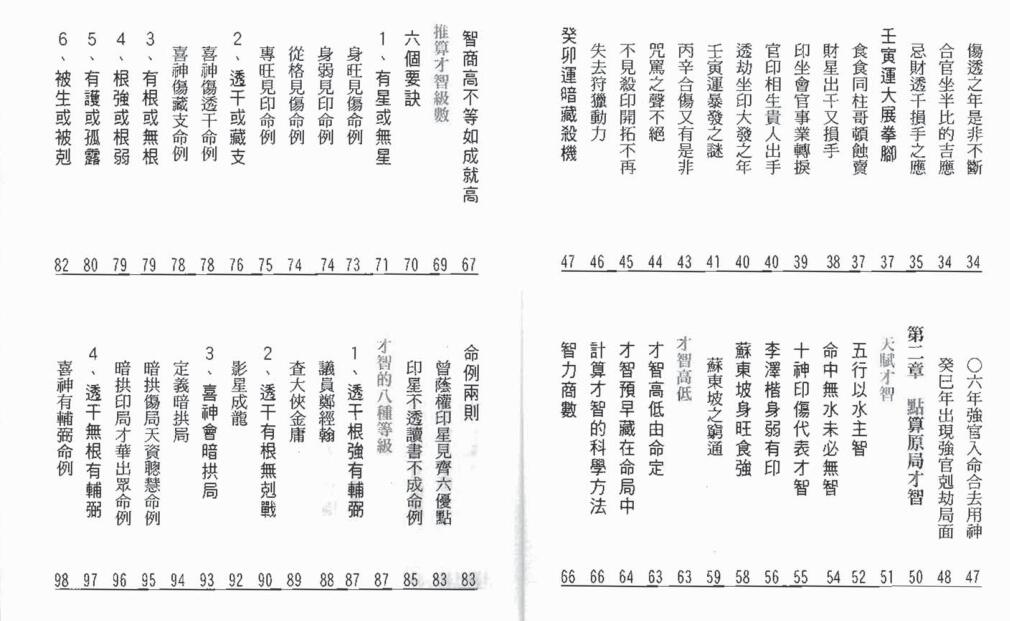 傷透之年是非不斷 34
合官坐半比的吉應 34
忌財透干損手之應 35
壬寅運大展拳腳 37
食食同柱哥頓蝕賣 37
財星出干又損手 38
印坐會官事業轉捩 39
官印相生貴人出手 40
透劫坐印大發之年 40
壬寅運暴發之謎 41
丙辛合傷又有是非 43
咒罵之聲不絕 44
不見殺印開拓不再 45
失去狩獵動力 46
癸卯運暗藏殺機 47
〇六年強官入命合去用神 47
癸巳年出現強官剋劫局面 48
第二章 點算原局才智 50
天賦才智 51
五行以水主智 52
命中無水未必無智 54
十神印傷代表才智 55
李澤楷身弱有印 56
蘇東坡身旺食強 58
蘇東坡之窮通 59
才智高低 63
才智高低由命定 63
才智預早藏在命局中 64
計算才智的科學方法 66
智力商數 66
智商高不等如成就高 67
推算才智級數 69
六個要訣 70
1、有星或無星 71
身旺見傷命例 73
身弱見印命例 74
從格見傷命例 74
專旺見印命例 75
2、透干或藏支 76
喜神傷透干命例 78
喜神傷藏支命例 78
3、有根或無根 79
4、根強或根弱 79
5、有護或孤露 80
6、被生或被剋 82
命例兩則 83
曾蔭權印星見齊六優點 83
印星不透讀書不成命例 85
才智的八種等級 87
1、透干根強有輔弼 87
議員鄭經翰 88
查大俠金庸 89
2、透干有根無剋戰 90
影星成龍 92
3、喜神會暗拱局 93
定義暗拱局 94
暗拱傷局天資聰慧命例 95
暗拱印局才華出眾命例 96
4、透干無根有輔弼 97
喜神有輔弼命例 98